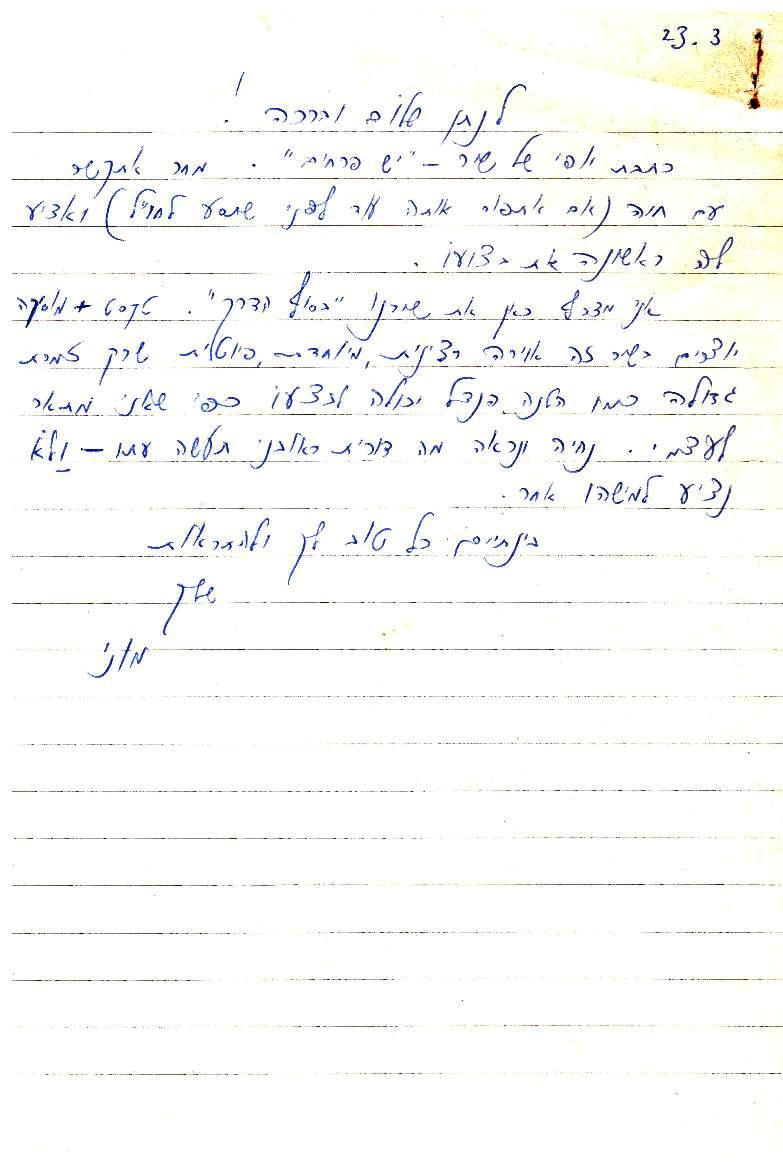 23.3
לנתן שלום וברכה !
כתבת יופי של שיר – "יש פרחים". מחר אתקשר
עם חוה (אם אתפוס אותה עוד לפני שתסע לחו"ל) ואציע
לה ראשונה את בצועו.
אני מצרף כאן את שירנו "בסוף הדרך". טקסט + מוסיקה
יוצרים בשיר זה אוירה רצינית, מיוחדת, פיוטית שרק זמרת
גדולה כמו הלנה הנדל יכולה לבצעו כפי שאני מתאר
לעצמי. נחיה ונראה מה דורית ראובני תעשה עמו – ולא
נציע למישהו אחר.
בינתיים כל טוב לך ולהתראות
שלך
מוני